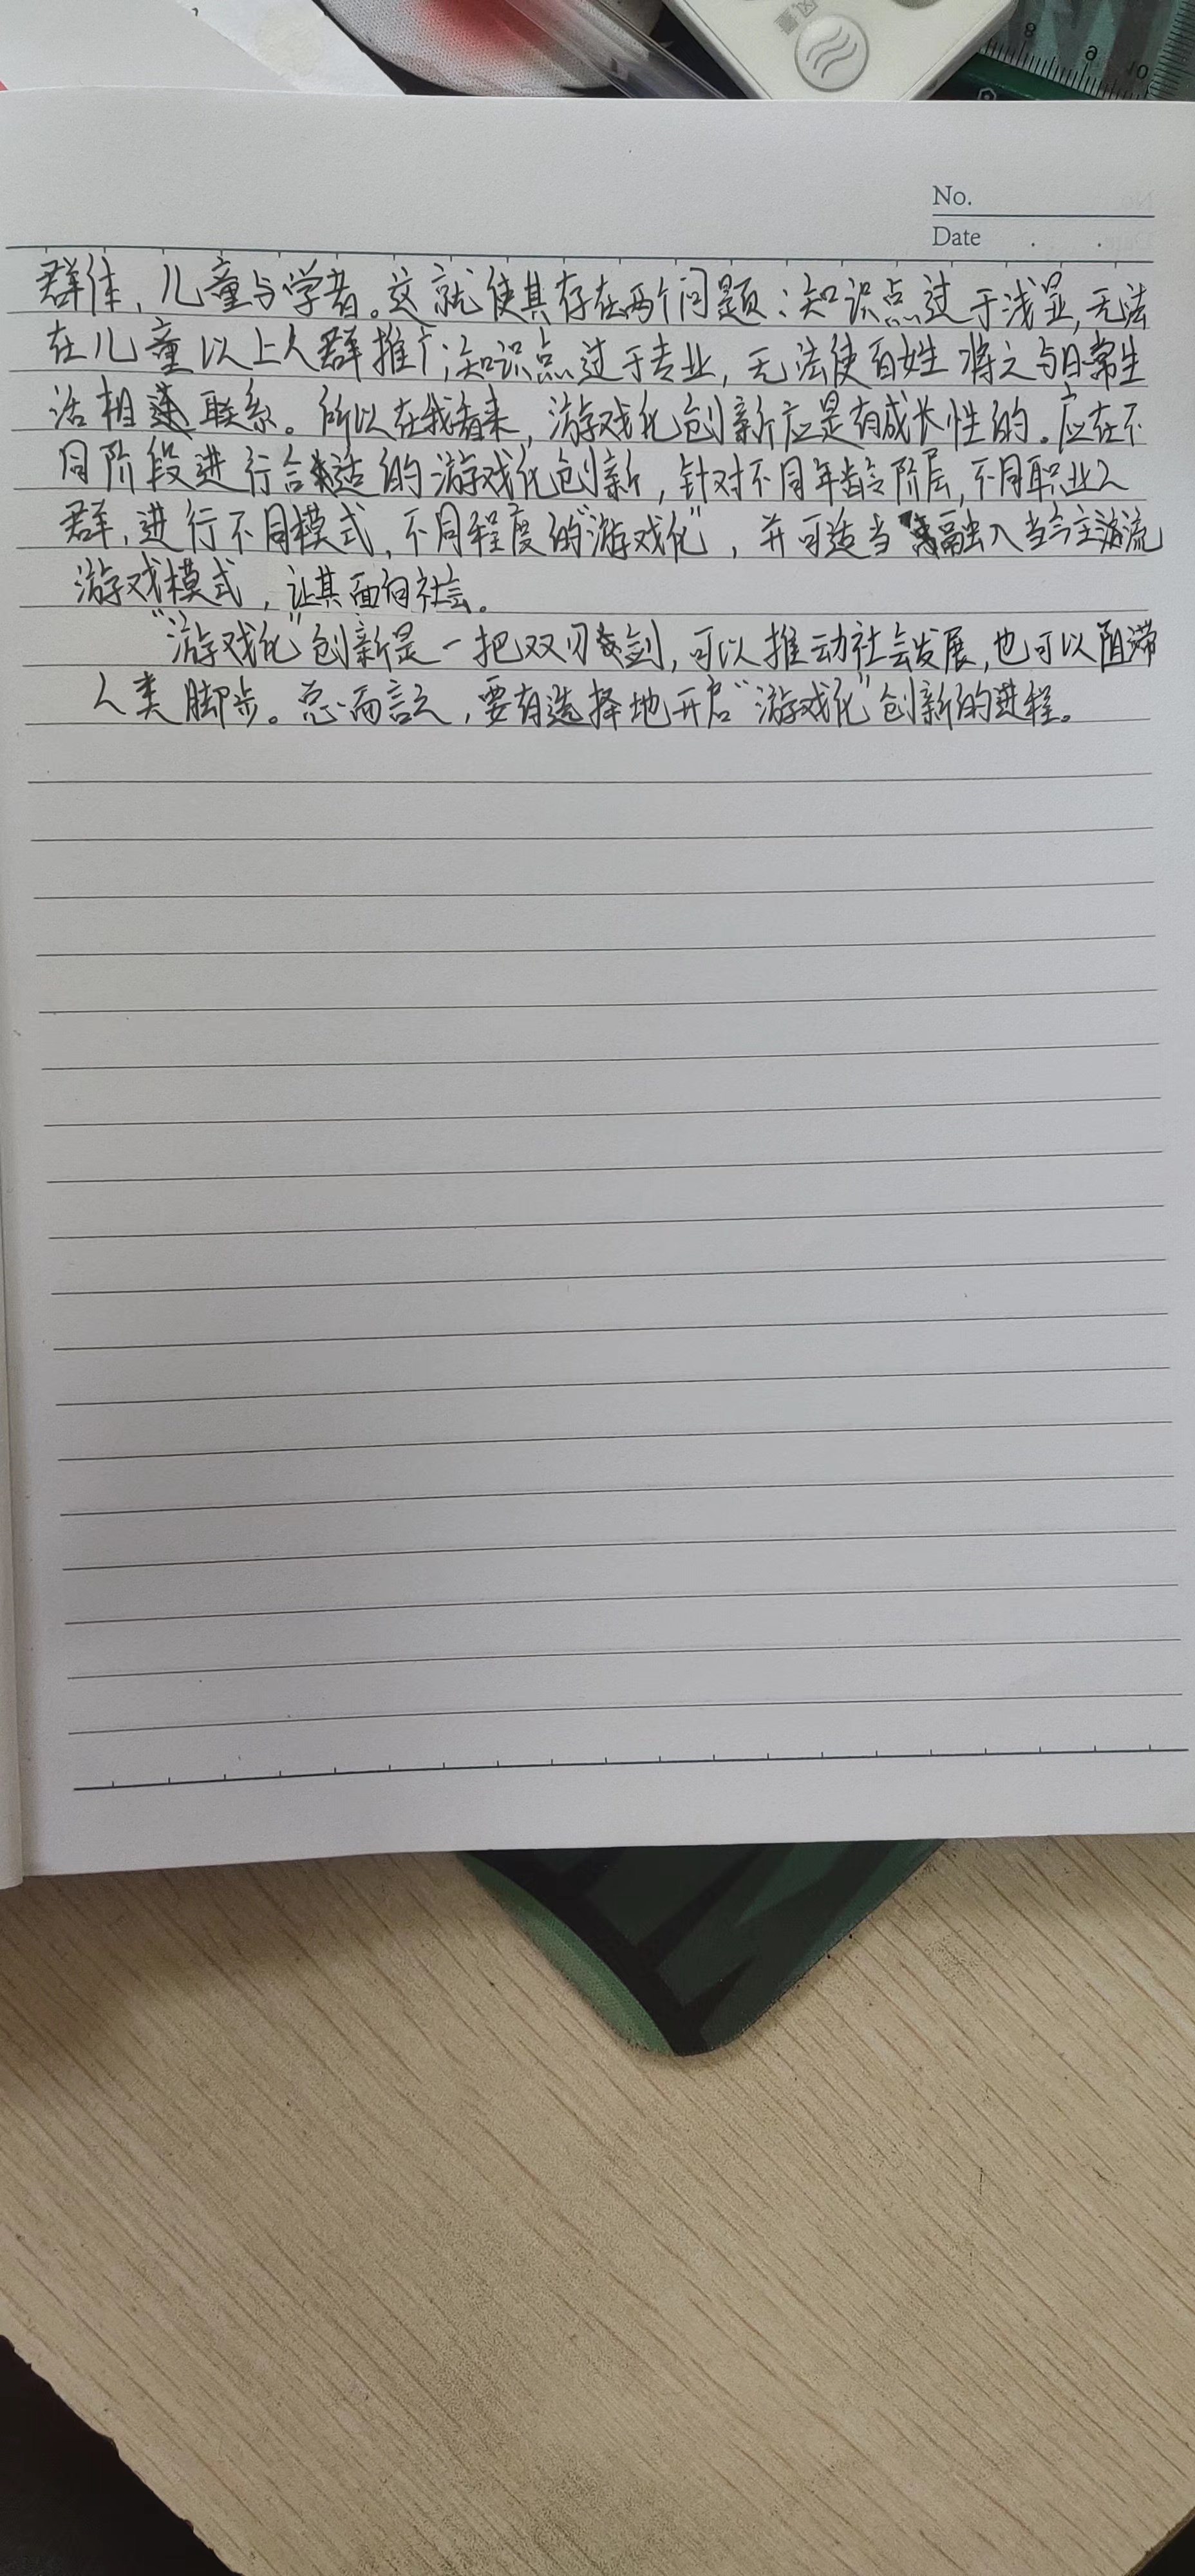 No.
Date
群体，儿童与学者。这就使其存在两个问题：知识点过于浅显，无法
在儿童以上人群推广；知识点过于专业，无法使百姓将之与日常生
活相联系。所以在我看来，游戏化创新应是有成长性的。应在不
同阶段进行合适的游戏化创新，针对不同年龄阶层，不同职业人
群，进行不同模式，不同程度的“游戏化”，并可适当融入当今主流
游戏模式，让其面向社会。
“游戏化”创新是一把双刃剑，可以推动社会发展，也可以阻滞
人类脚步。总而言之，要有选择地开启“游戏化”创新的进程。
8
9
10